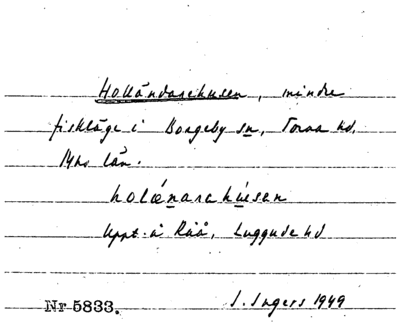 Holländarehusen, mindre
fiskläge i Borgeby sn, Torna hd.
Mhs län.
holænarehúsen
Uppt. i Råå, Luggude hd
Nr 5833. I. Ingers 1949